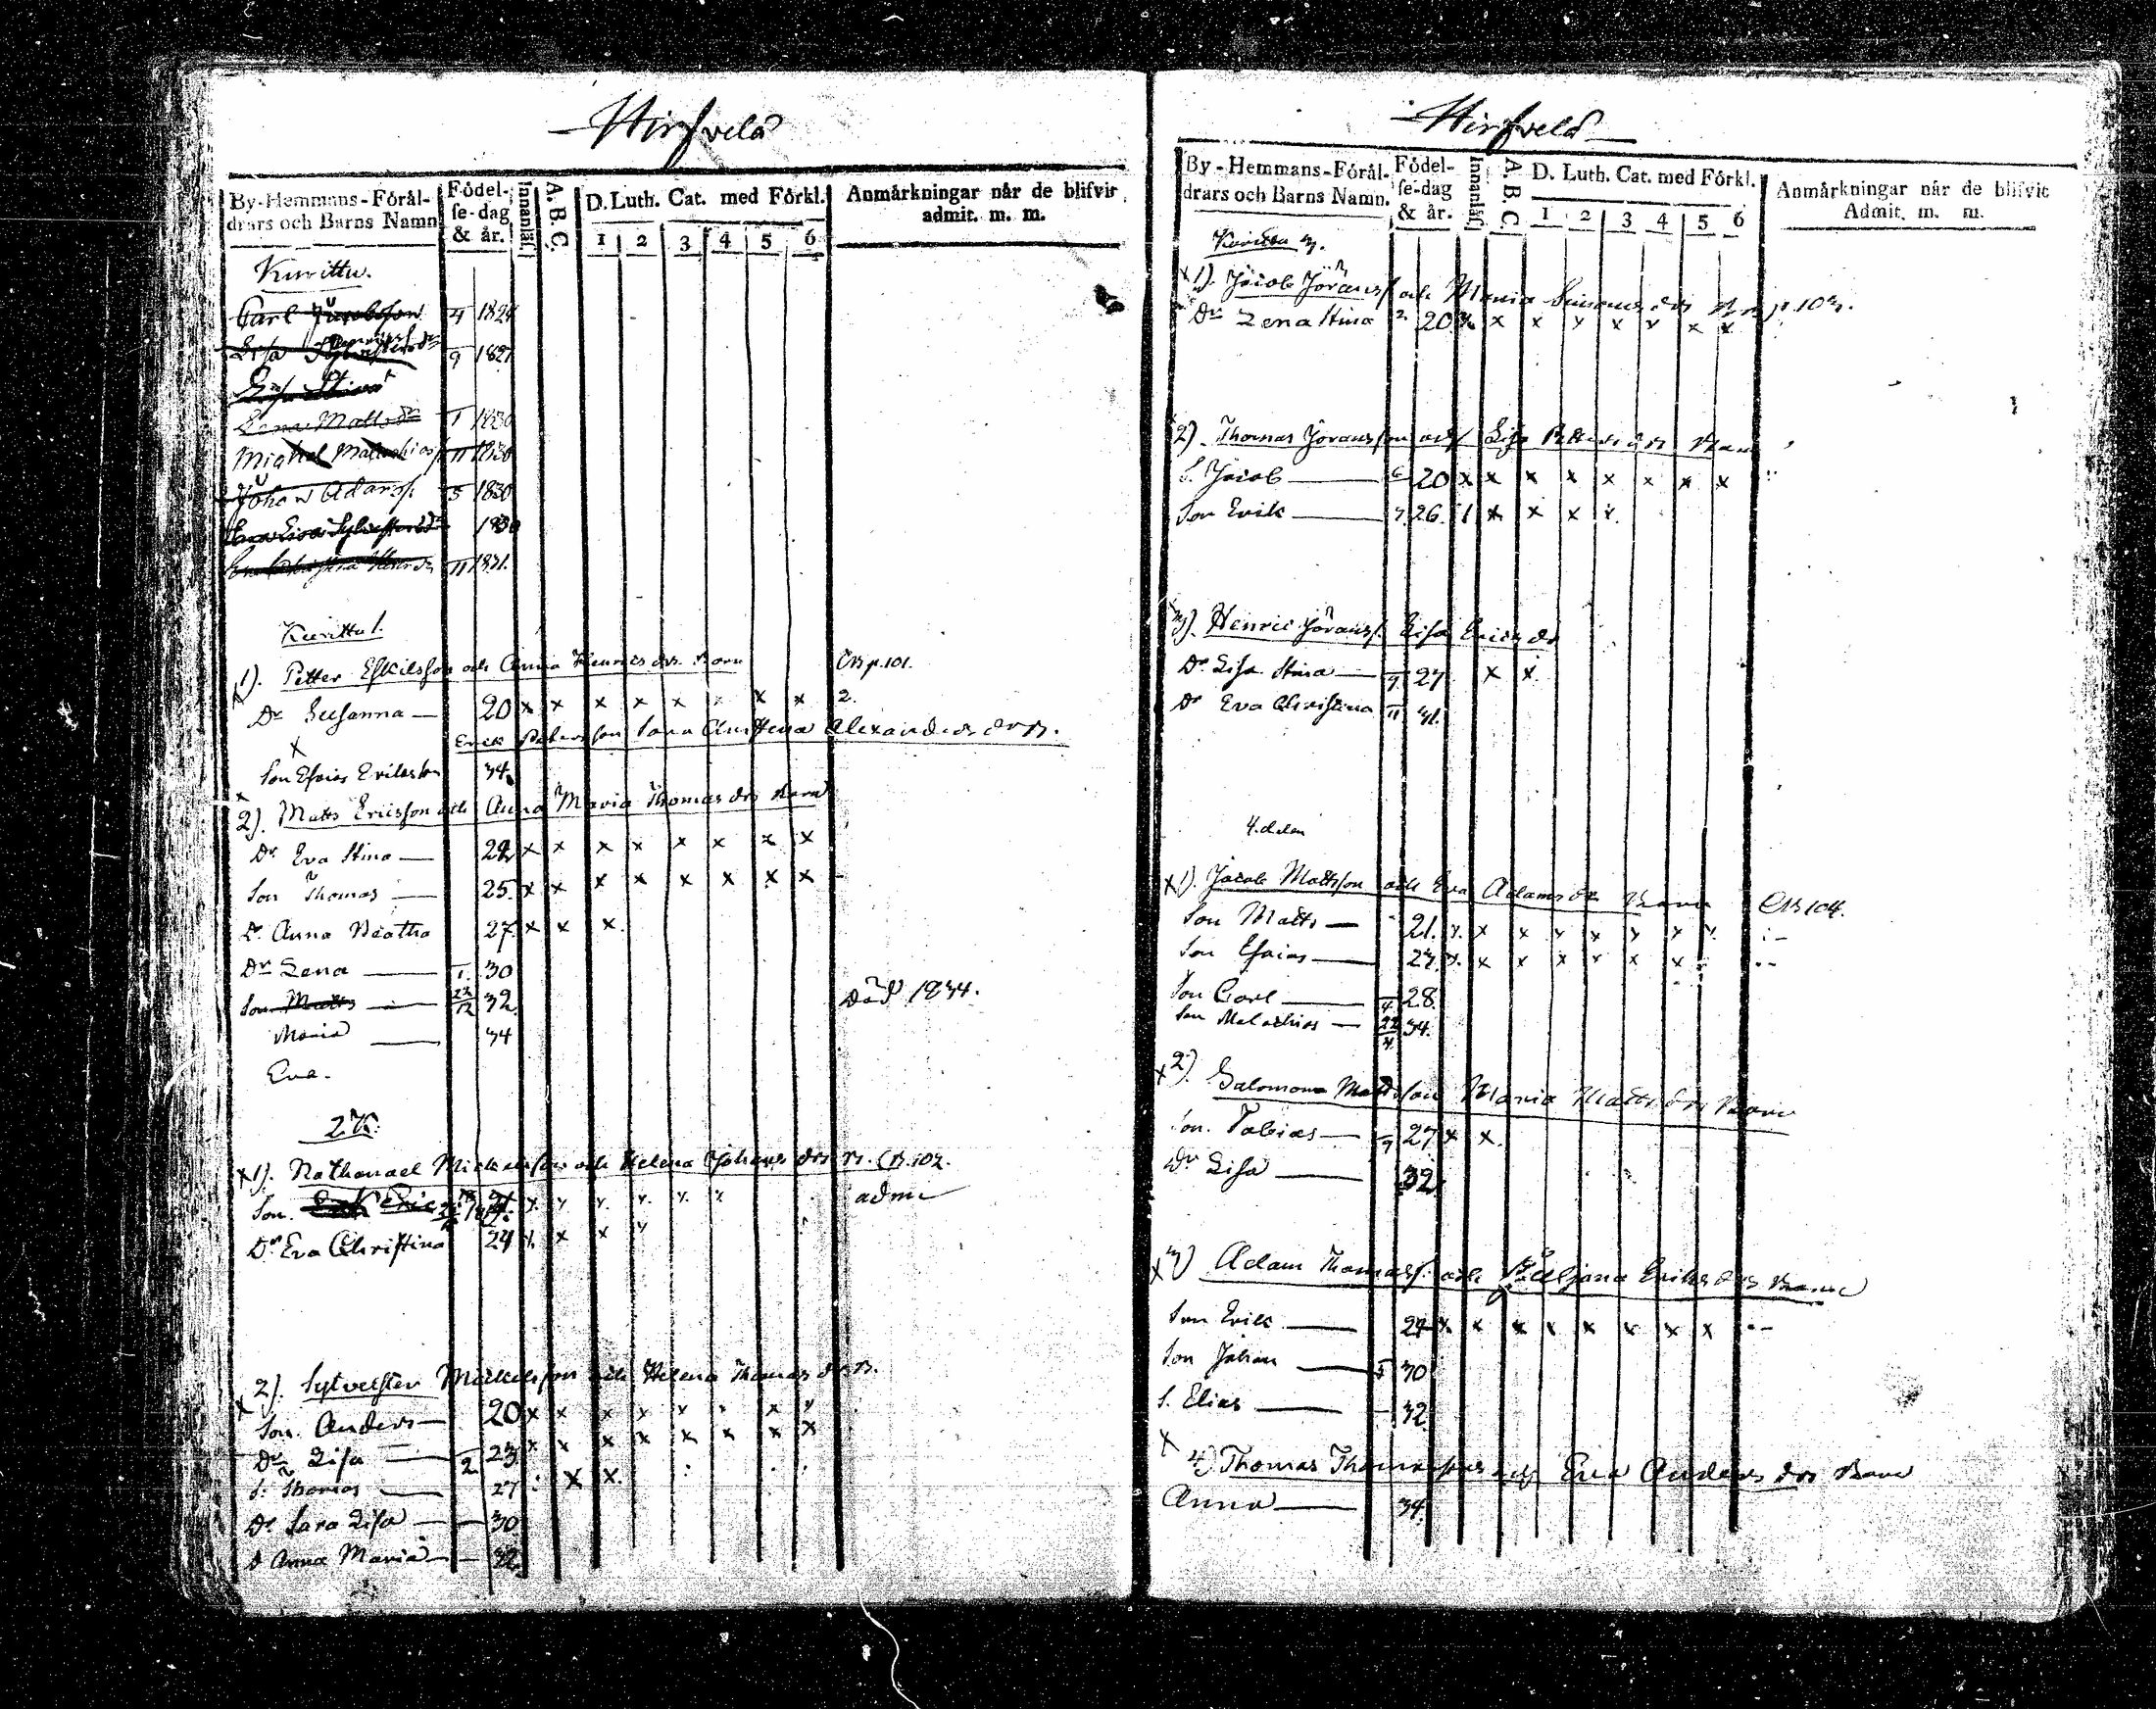 Hirfvelä
By-Hemmans-Föräl-
drars och Barns Namn
Födel-
se-dag
& år.
Innanläs.
A. B. C.
D. Luth. Cat. med Förkl.
1 2 3 4 5 6
Anmärkningar når de blifvir
admit. m. m.
Kurittu.
Carl Jacobsson 4 1828
Lisa 9 1827
Lisa Stina
Lena Mattsdr 1 1830
Michel Malachias 11 1830
Johan Adamss. 5 1830
Eva Lisa Sylvestersdr 1830
Eva Christina Henr.dr 11 1831.
Kurittu 1.
1). Petter Eskilsson och Anna Henricsdrs Barn CB p. 101.
Dr Susanna — 20 x x x x x x x x 2.
x Erick Petersson Sara Christina Alexandersdr B.
Son Esaias Ericsson 34.
x
2). Matts Ericsson och Anna Maria Thomasdrs Barn
Dr Eva Stina — 22 x x x x x x x x
Son Thomas — 25. x x x x x x x x -
Dr Anna Beatha 27. x x x.
Dr Lena — 1. 30
Son Matts — 23/12 32 Död 1834.
Maria — 34
Eva.
2 K.
x 1). Nathanael Mickelsson och Helena Johansdrs B. CB. 102.
Son. Eric x x x x x x adm
Dr Eva Christina 24 x x x x
x 2). Sylvester Mickelsson och Helena Thomasdrs B.
Son Anders — 20 x x x x x x x x
Dr Lisa — 2 23. x x x x x x x x
S. Thomas — 27 x x
Dr Sara Lisa — 30
D Anna Maria — 32.
Hirfvelä
By-Hemmans-Föräl-
drars och Barns Namn.
Födel-
se-dag
& år.
Innanläs.
A. B. C.
D. Luth. Cat. med Förkl.
1 2 3 4 5 6
Anmärkningar når de blifvit
Admit. m. m.
Kurittu 3.
x 1). Jacob Jöranss. och Maria Simonsdrs Bn p. 103.
Dr Lena Stina 2 20 x x x x x x x x
2). Thomas Jöransson och Lisa Pettersdrs Barn
S. Jacob — 6 20 x x x x x x x x
Son Erik — 7 26. x x x x.
3). Henric Jöranss. Lisa Ericsdr
Dr Lisa Stina — 9 27 x x
Dr Eva Christina 11 31.
4. delen
x 1). Jacob Mattsson och Eva Adamsdr Barn CB 104.
Son Matts — 21. x x x x x x x x
Son Esaias — x x x x x x x
Son Carl — 4 28
Son Malachias — 22/4 34.
x 2). Salomon Mattsson Maria Mattsdrs Barn
Son. Tobias — 9 27 x x.
Dr Lisa — 32
x 3) Adam Thomass. och Eriksdrs Barn
Son Erik — 24 x x x x x x x x
Son Johan — 5 30
S. Elias — 32
x 4) Thomas Thomasson och Eva Andersdrs Barn
Anna — 34.